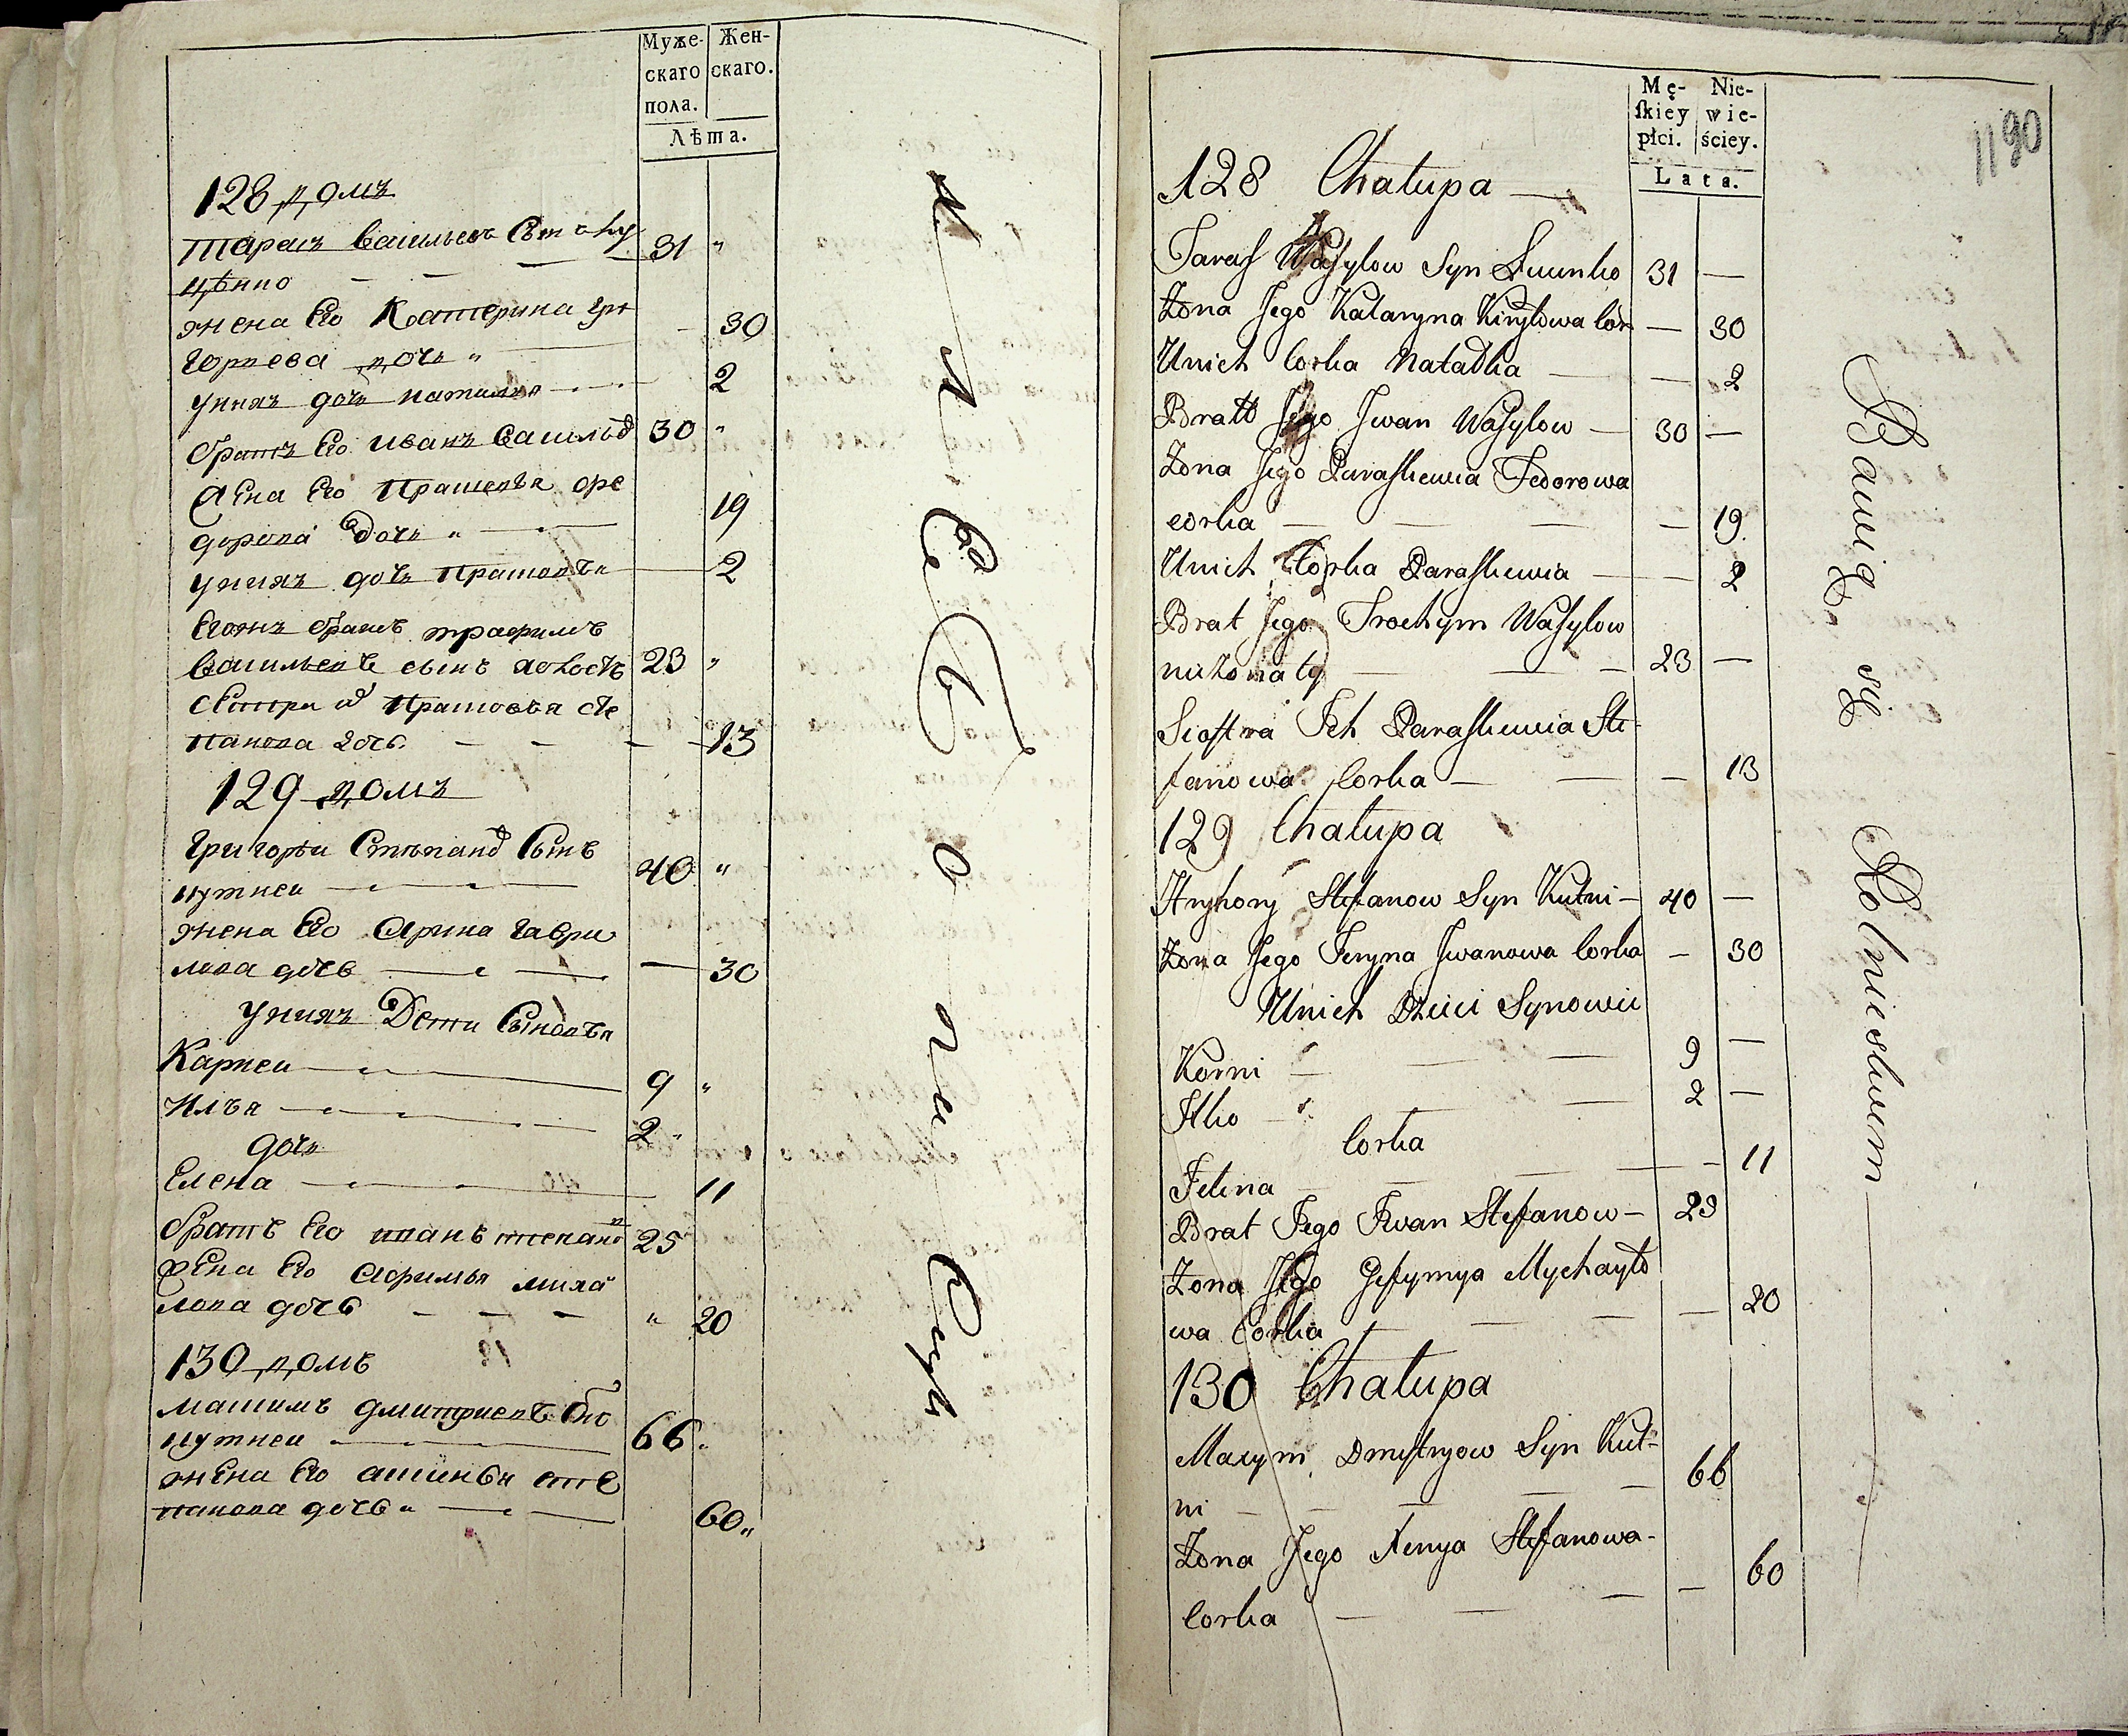 Муже-
скаго
пола.
Жен-
скаго.
Лѣта.
128 домъ
Тарасъ Васильевъ Сынъ Лу
цѣнко 31 "
жена Его Катерина Гри
горьева дочь " 30
у нихъ дочь наталья 2
братъ Его иванъ Васильев 30 "
жена Его Прасковья фе
дорова дочь " 19
у нихъ дочь Прасковья 2
Егожъ братъ трофимъ
Васильевъ сынъ холостъ 23 "
сестра их Прасковья сте
панова дочь 13
129 домъ
Григорѣи Степанов Сынъ
кутнеи 40 "
жена Его Арина гаври
лова дочь 30
у нихъ Дети Сыновья
Карнеи 9 "
Илья 2 "
дочь
Елена 11
братъ Его иванъ степанов 25
жена Его Афимья михаи
лова дочь " 20
130 домъ
максимъ дмитриевъ Снъ
кутнеи 66
жена Его аксинья сте
панова дочь " 60 "
Mę-
skiey
płci.
Nie-
wie-
ściey.
Lata.
1190
128 Chałupa
Taras Wasylow Syn Łucenko 31
Zona Jego Kataryna Kiryłowa Cór 30
Unich Corka Natałka 2
Bratt Jego Jwan Wasylow 30
Zona Jego Paraskewia Fedorowa
corka 19
Unich Corka Paraskewia 2
Brat Jego Trochym Wasylow
nieżonaty 23
Siostra Ich Paraskewia Ste
fanowa Corka 13
129 Chałupa
Hryhory Stefanow Syn Kutni 40
Zona Jego Jeryna Jwanowa Corka 30
Unich Dzieci Synowie
Korni 9
Jlko 2
Corka
Jelina 11
Brat Jego Iwan Stefanow 25
Zona Jego Jefymya Mychayło
wa Corka 20
130 Chałupa
Maxym Dmytryow Syn Kut-
ni 66
Zona Jego Xenya Stefanowa
Corka 60
Bawią się Rolnictwem